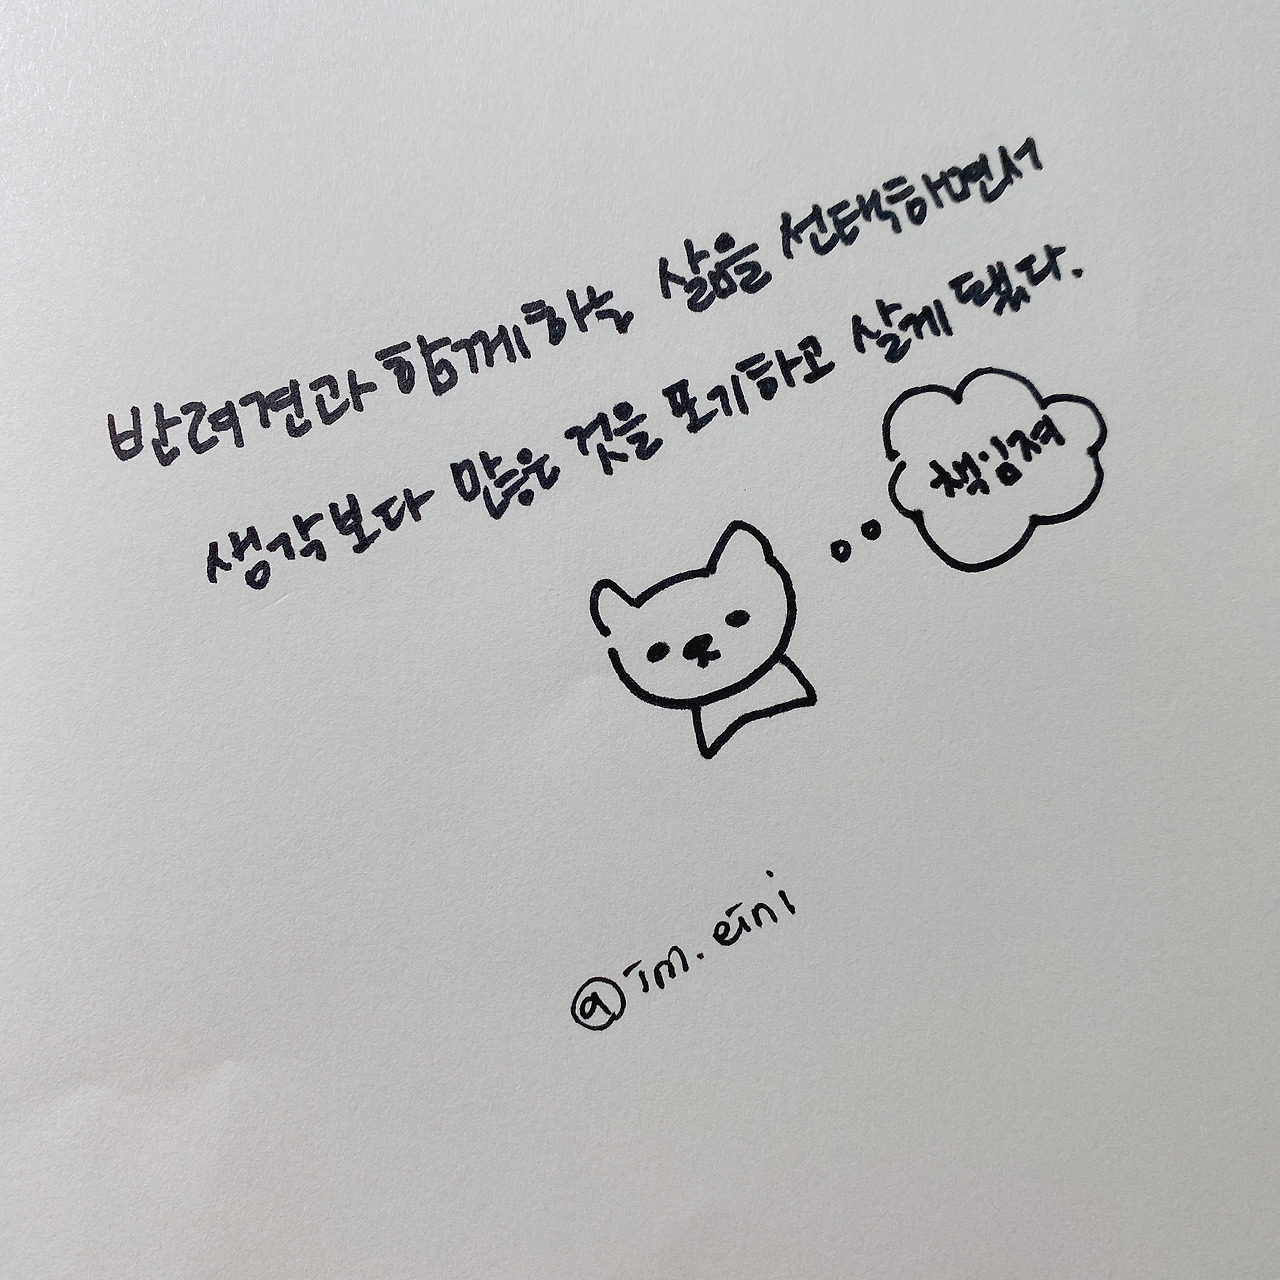 반려견과 함께하는 삶을 선택하면서
생각보다 많은 것을 포기하고 살게 됐다.
책임져
@im.eini